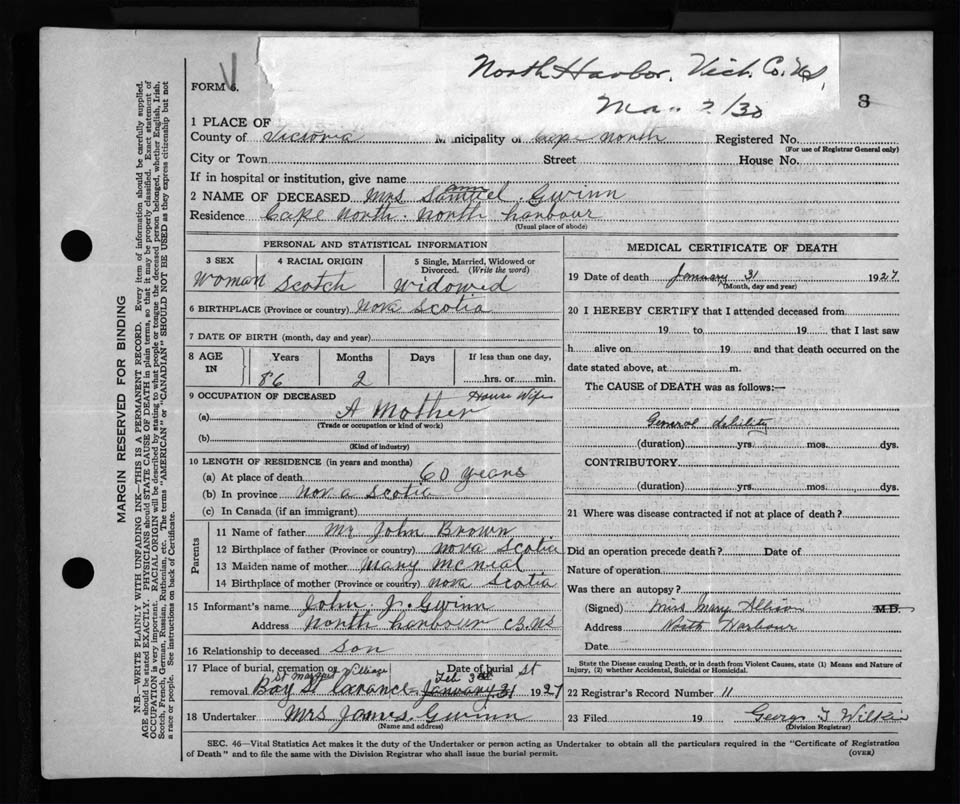 North Harbor. Vich. Co. NS,
Ma 2/30
FORM 6.
3
1 PLACE OF
County of Victoria Municipality of Cape North Registered No.
(For use of Registrar General only)
City or Town Street House No.
If in hospital or institution, give name
2 NAME OF DECEASED Mrs Samuel Gwinn
Residence Cape North. North harbour
(Usual place of abode)
PERSONAL AND STATISTICAL INFORMATION
3 SEX 4 RACIAL ORIGIN 5 Single, Married, Widowed or Divorced. (Write the word)
Woman Scotch Widowed
6 BIRTHPLACE (Province or country) Nova Scotia
7 DATE OF BIRTH (month, day and year)
8 AGE IN Years Months Days If less than one day,
86 2 hrs. or min.
9 OCCUPATION OF DECEASED House Wife
(a) A Mother
(Trade or occupation or kind of work)
(b)
(Kind of industry)
10 LENGTH OF RESIDENCE (in years and months)
(a) At place of death 60 years
(b) In province Nova Scotia
(c) In Canada (if an immigrant)
Parents
11 Name of father Mr John Brown
12 Birthplace of father (Province or country) nova Scotia
13 Maiden name of mother Mary McNeal
14 Birthplace of mother (Province or country) nova Scotia
15 Informant's name John J. Gwinn
Address North harbour C.B. NS
16 Relationship to deceased Son
17 Place of burial, cremation or St Margret Village Date of burial st
removal Bay St Feb 3rd January 31 1927
18 Undertaker Mrs James Gwinn
(Name and address)
MEDICAL CERTIFICATE OF DEATH
19 Date of death January 31 1927
(Month, day and year)
20 I HEREBY CERTIFY that I attended deceased from
19 to 19 that I last saw
h alive on 19 and that death occurred on the
date stated above, at m.
The CAUSE of DEATH was as follows:—
General debility
(duration) yrs. mos. dys.
CONTRIBUTORY
(duration) yrs. mos. dys.
21 Where was disease contracted if not at place of death?
Did an operation precede death? Date of
Nature of operation
Was there an autopsy?
(Signed) Miss Mary Allison M.D.
Address North Harbour
Date
State the Disease causing Death, or in death from Violent Causes, state (1) Means and Nature of
Injury, (2) whether Accidental, Suicidal or Homicidal.
22 Registrar's Record Number 11
23 Filed 19 George J Wilkie
(Division Registrar)
SEC. 46—Vital Statistics Act makes it the duty of the Undertaker or person acting as Undertaker to obtain all the particulars required in the "Certificate of Registration
of Death" and to file the same with the Division Registrar who shall issue the burial permit. (OVER)
MARGIN RESERVED FOR BINDING
N.B.—WRITE PLAINLY WITH UNFADING INK—THIS IS A PERMANENT RECORD. Every item of information should be carefully supplied.
AGE should be stated EXACTLY. PHYSICIANS should STATE CAUSE OF DEATH in plain terms, so that it may be properly classified. Exact statement of
OCCUPATION is very important. RACIAL ORIGIN will be described by stating to what people or tongue the deceased person belonged, whether English, Irish,
Scotch, French, German, Russian, Ruthenian, etc. The terms "AMERICAN" or "CANADIAN" SHOULD NOT BE USED as they express citizenship but not
a race or people. See instructions on back of Certificate.